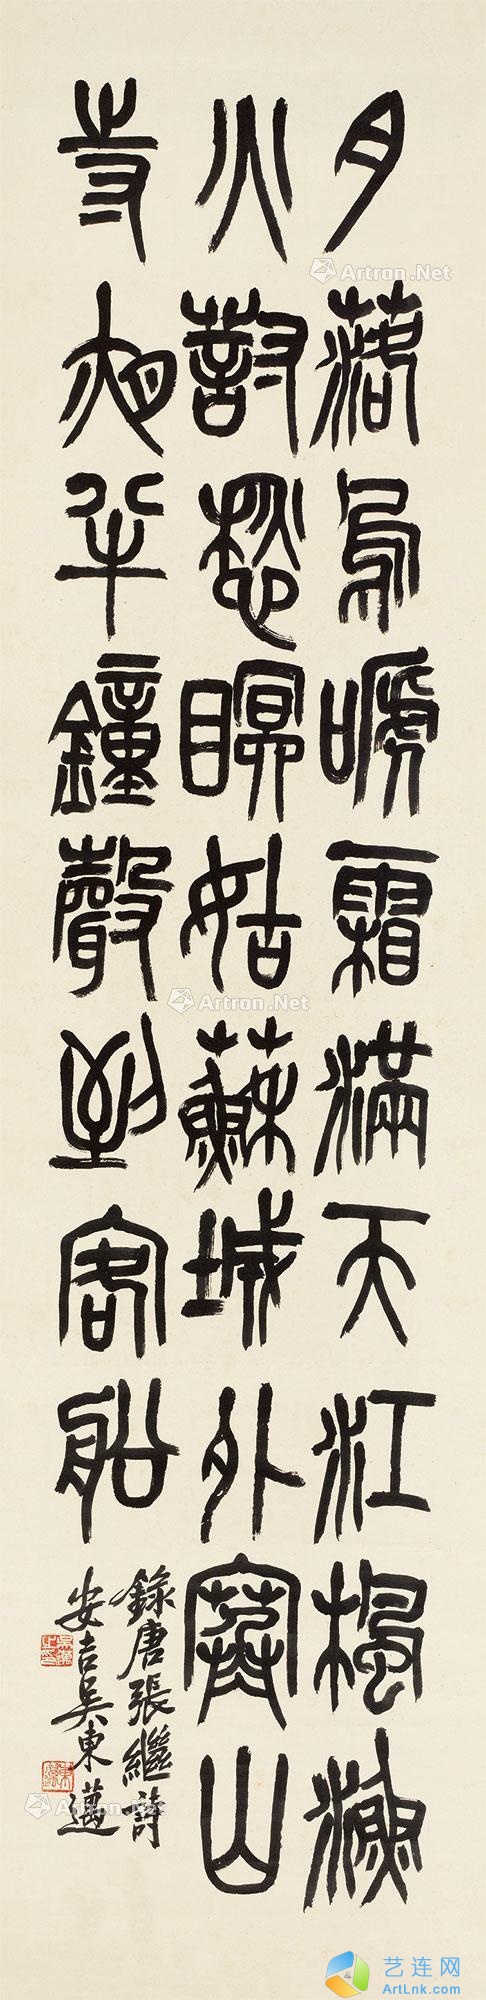 月落烏嗁霜滿天江楓漁
火對愁瞑姑蘇城外寒山
寺夜半鐘聲到客船
錄唐張繼詩
安吉吳東邁
Artron.Net
Artron.Net
Artron.Net
Artron.Net
艺连网
ArtLnk.com